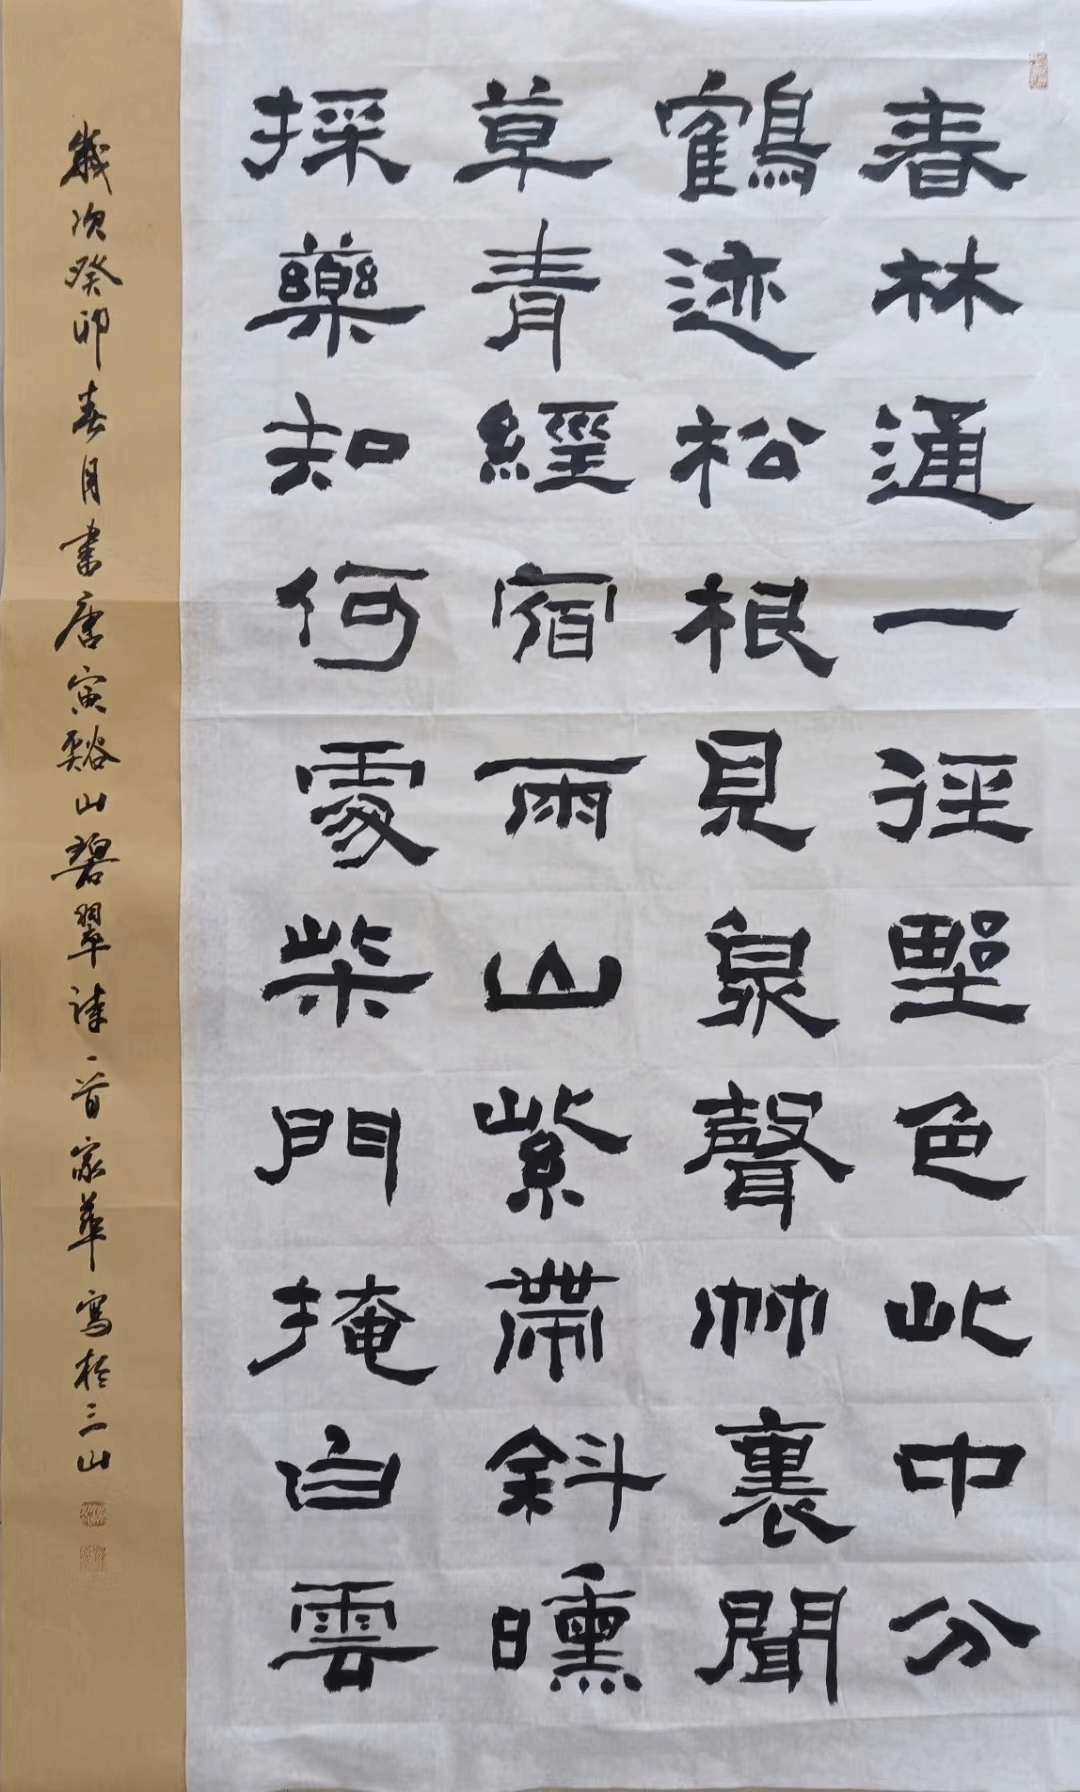 春林通一徑野色此中分
鶴迹松根見泉聲竹裏聞
草青經宿雨山紫帶斜曛
採藥知何處柴門掩白雲
歲次癸卯春月書唐寅谿山碧翠詩一首家華寫於三山